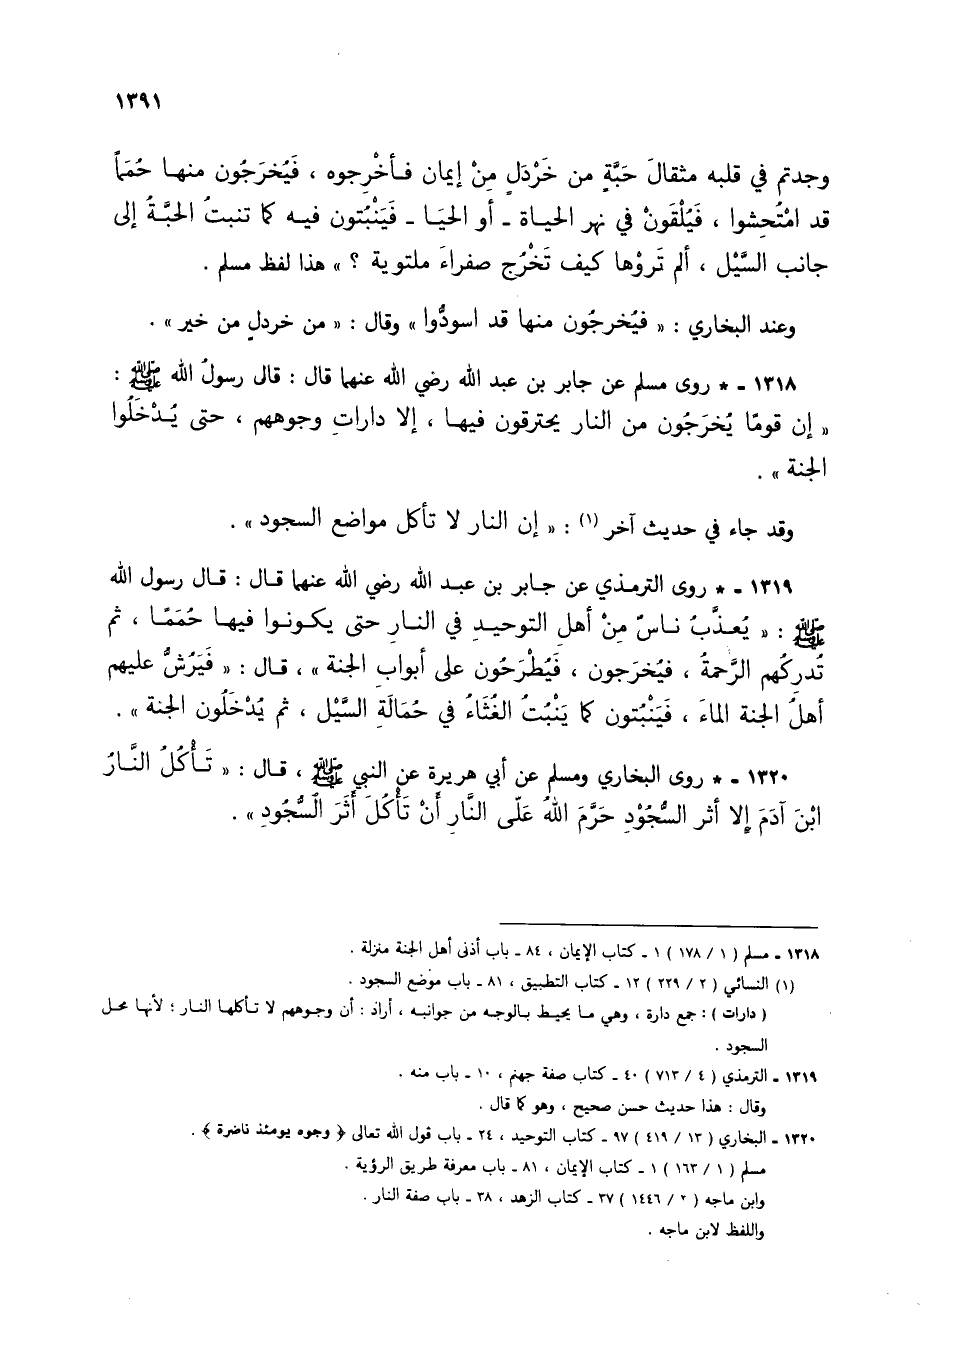 ١٣٩١
وجدتم في قلبه مثقالَ حَبَّةٍ من خَرْدَلٍ مِنْ إيمان فأخْرِجوه ، فَيُخرَجُون منها حُمَماً
قد امْتُحِشوا ، فَيُلْقَونْ في نهر الحياة ـ أو الحيَا ـ فَيَنْبُتون فيه كما تنبتُ الحَبَّةُ إلى
جانب السَّيْل ، ألم تَروْها كيف تَخْرُج صفراءَ ملتوية ؟ » هذا لفظ مسلم .
وعند البخاري : « فيُخرجُون منها قد اسودُّوا » وقال : « من خردلٍ من خير » .
١٣١٨ - * روى مسلم عن جابر بن عبد الله رضي الله عنهما قال : قال رسولُ الله ﷺ :
« إن قومًا يُخرَجُون من النار يحترقون فيها ، إلا داراتِ وجوههم ، حتى يُدْخَلُوا
الجنة » .
وقد جاء في حديث آخر (١) : « إن النار لا تأكل مواضع السجود » .
١٣١٩ - * روى الترمذي عن جابر بن عبد الله رضي الله عنهما قال : قال رسول الله
ﷺ : « يُعذَّبُ ناسٌ مِنْ أهلِ التوحيدِ في النارِ حتى يكونوا فيها حُمَمًا ، ثم
تُدركُهم الرَّحمةُ ، فيُخرَجون ، فَيُطْرَحُون على أبوابِ الجنة » ، قال : « فَيَرُشُّ عليهم
أهلُ الجنة الماءَ ، فَيَنْبُتون كما يَنْبُتُ الغُثَاءُ في حُمَالَةِ السَّيْل ، ثم يُدْخَلُون الجنة » .
١٣٢٠ - * روى البخاري ومسلم عن أبي هريرة عن النبي ﷺ ، قال : « تَأْكُلُ النَّارُ
ابْنَ آدَمَ إلا أثر السُّجُوْدِ حَرَّمَ اللهُ عَلَى النَّارِ أَنْ تَأْكُلَ أَثَرَ السُّجُودِ » .
١٣١٨ - مسلم ( ١ / ١٧٨ ) ١ ـ كتاب الإيمان ، ٨٤ ـ باب أدنى أهل الجنة منزلة .
(١) النسائي ( ٢ / ٢٢٩ ) ١٢ ـ كتاب التطبيق ، ٨١ ـ باب موضع السجود .
( دارات ) : جمع دارة ، وهي ما يحيط بالوجه من جوانبه ، أراد : أن وجوههم لا تأكلها النار ؛ لأنها محل
السجود .
١٣١٩ - الترمذي ( ٤ / ٧١٣ ) ٤٠ ـ كتاب صفة جهنم ، ١٠ ـ باب منه .
وقال : هذا حديث حسن صحيح ، وهو كما قال .
١٣٢٠ - البخاري ( ١٣ / ٤١٩ ) ٩٧ ـ كتاب التوحيد ، ٢٤ ـ باب قول الله تعالى ﴿ وجوه يومئذ ناضرة ﴾ .
مسلم ( ١ / ١٦٣ ) ١ ـ كتاب الإيمان ، ٨١ ـ باب معرفة طريق الرؤية .
وابن ماجه ( ٢ / ١٤٤٦ ) ٣٧ ـ كتاب الزهد ، ٣٨ ـ باب صفة النار .
واللفظ لابن ماجه .